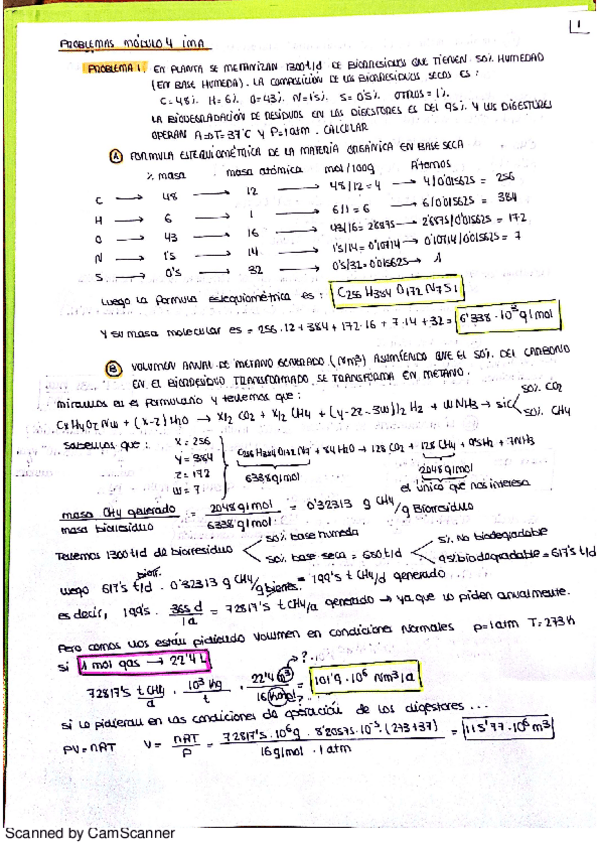 1
PROBLEMAS MÓDULO 4 IMA
PROBLEMA 1. EN PLANTA SE METANIZAN 1300 t/d DE BIORRESIDUOS QUE TIENEN 50% HUMEDAD
(EN BASE HÚMEDA). LA COMPOSICIÓN DE LOS BIORRESIDUOS SECOS ES:
C=48% H=6% O=43% N=1'5% S=0'5% OTROS=1%.
LA BIODEGRADACIÓN DE RESIDUOS EN LOS DIGESTORES ES DEL 95% Y LOS DIGESTORES
OPERAN A T=37°C Y P=1atm. CALCULAR
A FORMULA ESTEQUIOMÉTRICA DE LA MATERIA ORGÁNICA EN BASE SECA
% masa masa atómica mol/100g Átomos
C → 48 → 12 → 48/12=4 → 4/0'015625 = 256
H → 6 → 1 → 6/1=6 → 6/0'015625 = 384
O → 43 → 16 → 43/16=2'6875 → 2'6875/0'015625 = 172
N → 1'5 → 14 → 1'5/14=0'10714 → 0'10714/0'015625 = 7
S → 0'5 → 32 → 0'5/32=0'015625 → 1
Luego la formula estequiométrica es: C256 H384 O172 N7 S1
Y su masa molecular es = 256·12+384+172·16+7·14+32= 6'338·10³ g/mol
B VOLUMEN ANUAL DE METANO GENERADO (Nm3) ASUMIENDO QUE EL 50% DEL CARBONO
EN EL BIORRESIDUO TRANSFORMADO SE TRANSFORMA EN METANO.
miramos en el formulario y tenemos que:
CxHyOzNw + (x-z) H2O → x/2 CO2 + x/2 CH4 + (y-2z-3w)/2 H2 + wNH3 → si C 50% CO2
50% CH4
Sabemos que: x=256
y=384
z=172
w=7
C256H384O172N7 + 84H2O → 128CO2 + 128CH4 + 9'5H2 + 7NH3
6338g/mol 2048g/mol
el único que nos interesa
masa CH4 generado / masa biorresiduo = 2048g/mol / 6338g/mol = 0'32313 g CH4/g Biorresiduo
Tenemos 1300t/d de biorresiduo 50% base humeda
50% base seca = 650t/d 5% No biodegradable
95% biodegradable = 617'5 t/d
Luego 617'5 t/d · 0'32313 g CH4/g bior. = 199'5 t CH4/d generado
es decir, 199'5 · 365d/1a = 72817'5 t CH4/a generado → ya que lo piden anualmente.
Pero como nos están pidiendo volumen en condiciones normales p=1atm T=273k
si 1 mol gas → 22'4L
72817'5 t CH4/a · 10³ kg/t · 22'4 m³/16 kmol = 101'9·10⁶ Nm3/a
si lo pidieran en las condiciones de operación de los digestores...
PV=nRT V= nRT/P = 72817'5·10⁶g · 8'20575·10⁻⁵·(273+37) / 16g/mol · 1atm = 115'77·10⁶ m3
Scanned by CamScanner